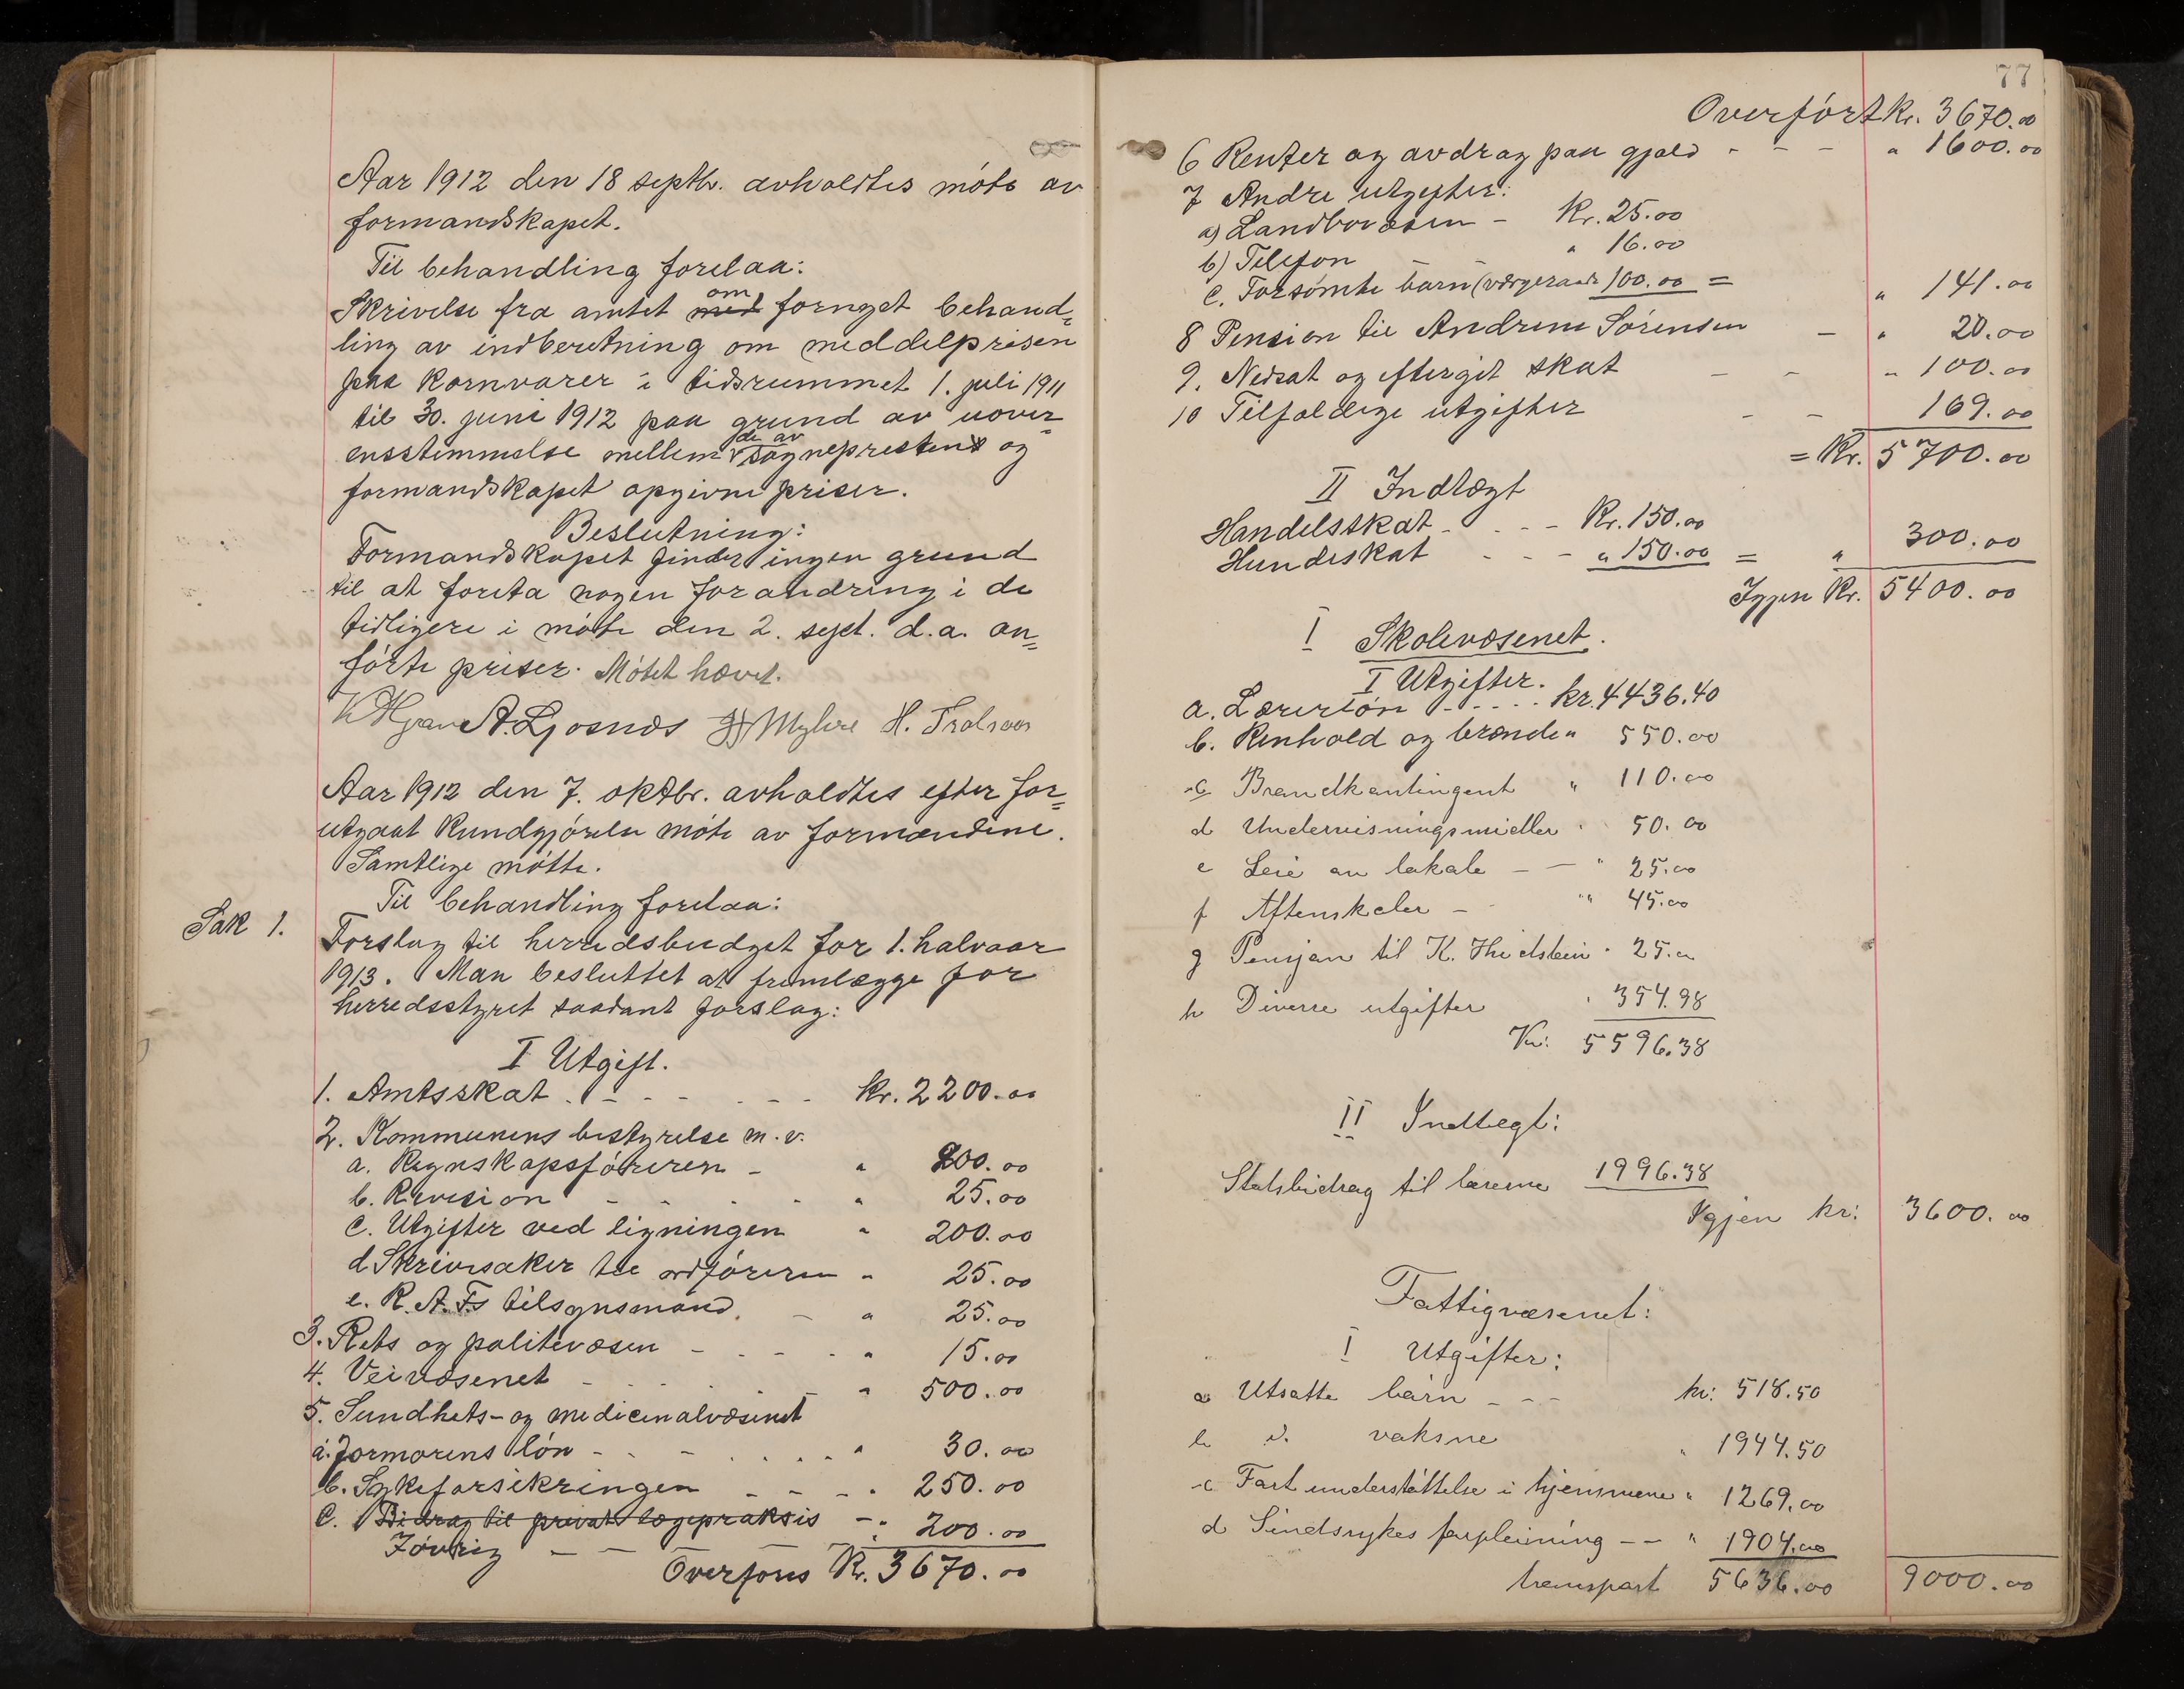 Aar 1912 den 18 septbr. avholdtes møte av
formandskapet.
Til behandling forelaa:
Skrivelse fra amtet med om fornyet behand=
ling av indberetning om middelprisen
paa kornvarer i tidsrummet 1. juli 1911
til 30. juni 1912 paa grund av uover=
ensstemmelse mellem de av sogneprestens og
formandskapet opgivne priser.
Beslutning:
Formandskapet finder ingen grund
til at foreta nogen forandring i de
tidligere i møte den 2. sept. d.a. an=
førte priser. Møtet hævet.
A. Ljosnæs Myhre H.
Aar 1912 den 7. oktbr. avholdtes efter for=
utgaat kundgjørelse møte av formændene.
Samtlige møtte.
Til behandling forelaa:
Sak 1.
Forslag til herredsbudget for 1. halvaar
1913. Man besluttet at fremlægge for
herredsstyret saadant forslag:
I Utgift.
1. Amtsskat . - - - . - - kr. 2200.00
2. Kommunens bestyrelse m.v.
a. Regnskapsføreren - " 200.00
b. Revision - - - - " 25.00
c. Utgifter ved ligningen " 200.00
d Skrivesaker til ordføreren " 25.00
e. R.A.Fs tilsynsmand. - " 25.00
3. Rets og politivæsen - - - - " 15.00
4. Veivæsenet - - - - - " 500.00
5. Sundhets- og medicinalvæsenet
a. Jormorens løn - - - . . . " 30.00
b. Sykeforsikringen - - - " 250.00
c. Bidrag til privat lægepraksis - " 200.00
Iøvrig - - -
Overføres Kr. 3670.00
77
Overført kr. 3670.00
6 Renter og avdrag paa gjæld - - - " 1600.00
7 Andre utgifter:
a) Landbovæsen - Kr. 25.00
b) Telefon " 16.00
c. Forsømte barn (værgeraad) 100.00 = " 141.00
8 Pension til Andrine Sørensen - " 20.00
9. Nedsat og eftergit skat - - " 100.00
10 Tilfældige utgifter - - 169.00
= Kr. 5700.00
II Indtægt
Handelsskat - . - - Kr. 150.00
Hundeskat - - - " 150.00 = " 300.00
Igjen Kr. 5400.00
I Skolevæsenet.
I Utgifter.
a. Lærerløn - . . . . kr. 4436.40
b. Renhold og brænde " 550.00
c Brandkontingent " 110.00
d Undervisningsmidler " 50.00
e Leie av lokale - - " 25.00
f Aftenskoler - " 45.00
g Pensjon til K. " 25.00
h Diverse utgifter " 354.98
Kr: 5596.38
II Indtægt:
Statsbidrag til lærerne 1996.38
Igjen kr: 3600.00
Fattigvæsenet:
I Utgifter:
a Utsatte barn - - - kr: 518.50
b d. voksne " 1944.50
c Fast understøttelse i hjemmene " 1269.00
d Sindssykes forpleining - - " 1904.00
transport 5636.00 9000.00